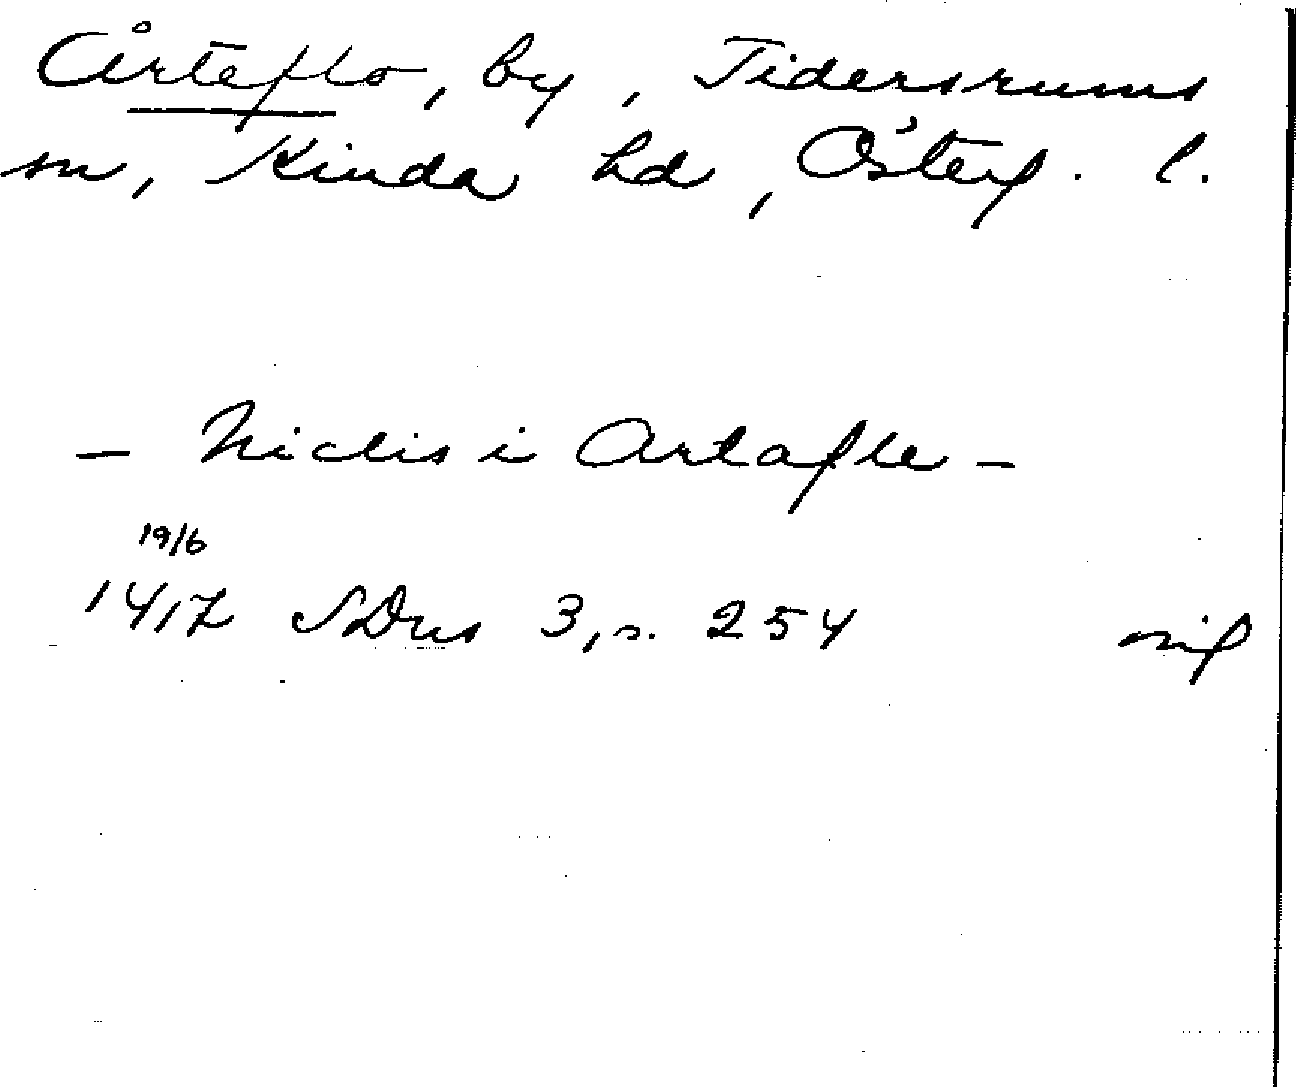 Årteflo, by, Tidersrums
sn, Kinda hd, Österg. l.
– Niclis i Artafle –
19/6
1417 SDns 3, s. 254